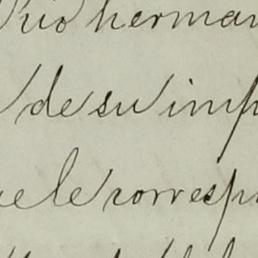 rio herman
de su imp
ele corresp